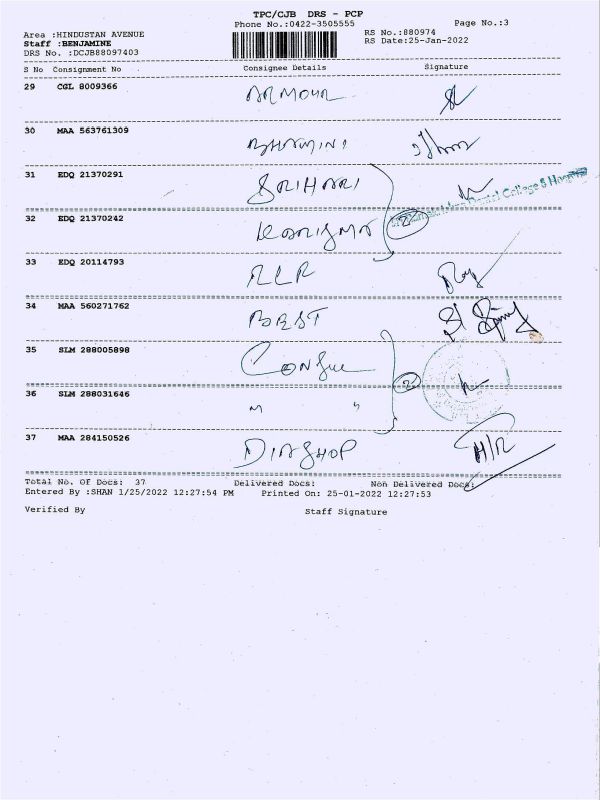 TPC/CJB DRS - PCP
Phone No.:0422-3505555
Page No.:3
Area :HINDUSTAN AVENUE
RS No.:880974
Staff :BENJAMINE
RS Date:25-Jan-2022
DRS No. :DCJB88097403
S No Consignment No Consignee Details Signature
29 CGL 8009366 ARMOUR
30 MAA 563761309 BHAMINI
31 EDQ 21370291 SRIHARI
Dental College & Hospital
32 EDQ 21370242 2
33 EDQ 20114793 RLR
34 MAA 560271762 BEST
35 SLM 288005898
36 SLM 288031646 " " 2
37 MAA 284150526 H/R
Total No. Of Docs: 37 Delivered Docs: Non Delivered Docs:
Entered By :SHAN 1/25/2022 12:27:54 PM Printed On: 25-01-2022 12:27:53
Verified By Staff Signature